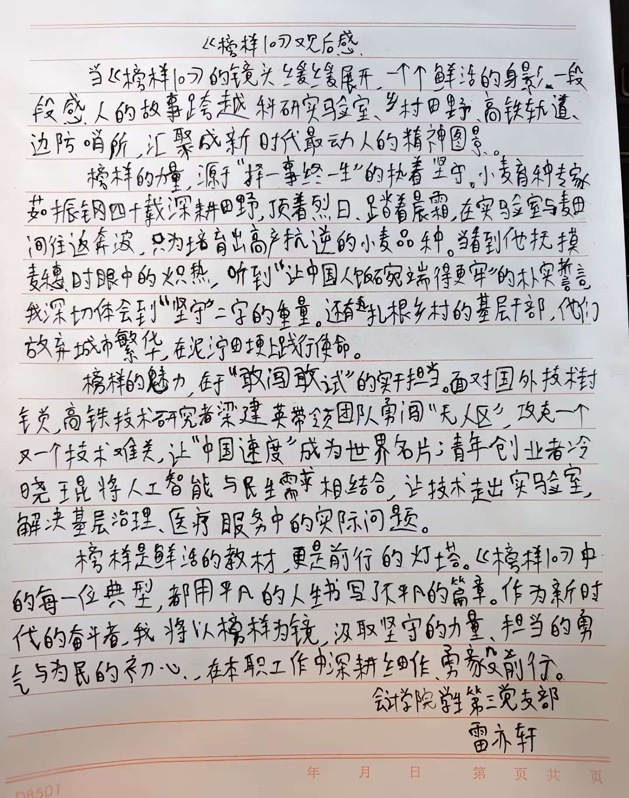 《榜样10》观后感
当《榜样10》的镜头缓缓展开,一个个鲜活的身影、一段
段感人的故事跨越科研实验室、乡村田野、高铁轨道、
边防哨所,汇聚成新时代最动人的精神图景。
榜样的力量,源于“择一事终一生”的执着坚守。小麦育种专家
茹振钢四十载深耕田野,顶着烈日、踏着晨霜,在实验室与麦田
间往返奔波,只为培育出高产抗逆的小麦品种。当看到他抚摸
麦穗时眼中的炽热,听到“让中国人饭碗端得更牢”的朴实誓言
我深切体会到“坚守”二字的重量。还有扎根乡村的基层干部,他们
放弃城市繁华,在泥泞田埂上践行使命。
榜样的魅力,在于“敢闯敢试”的实干担当。面对国外技术封
锁,高铁技术研究者梁建英带领团队勇闯“无人区”,攻克一个
又一个技术难关,让“中国速度”成为世界名片;青年创业者冷
晓琨将人工智能与民生需求相结合,让技术走出实验室,
解决基层治理、医疗服务中的实际问题。
榜样是鲜活的教材,更是前行的灯塔。《榜样10》中
的每一位典型,都用平凡的人生书写了不平凡的篇章。作为新时
代的奋斗者,我将以榜样为镜,汲取坚守的力量、担当的勇
气与为民的初心,在本职工作中深耕细作、勇毅前行。
会计学院学生第三党支部
雷亦轩
年 月 日 第 页 共 页
DB501